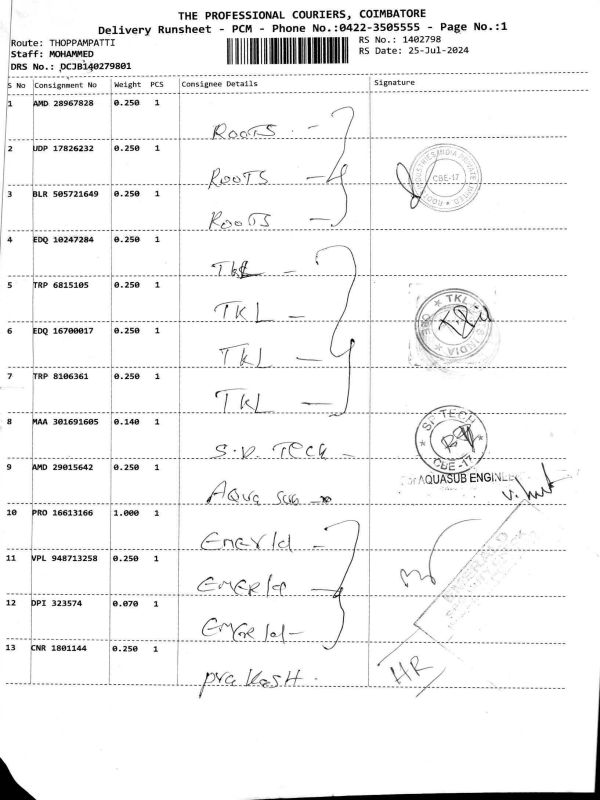 THE PROFESSIONAL COURIERS, COIMBATORE
Delivery Runsheet - PCM - Phone No.:0422-3505555 - Page No.:1
Route: THOPPAMPATTI
RS No.: 1402798
Staff: MOHAMMED
RS Date: 25-Jul-2024
DRS No.: DCJB140279801
S No Consignment No Weight PCS Consignee Details Signature
1 AMD 28967828 0.250 1
ROOTS -
2 UDP 17826232 0.250 1
ROOTS -
CBE-17
3 BLR 505721649 0.250 1
ROOTS -
4 EDQ 10247284 0.250 1
TKL -
5 TRP 6815105 0.250 1
TKL -
6 EDQ 16700017 0.250 1
TKL -
7 TRP 8106361 0.250 1
TKL -
8 MAA 301691605 0.140 1
S.P. TECH -
SP TECH
CBE-17
9 AMD 29015642 0.250 1
AQUA SUB -
For AQUASUB ENGINEE
10 PRO 16613166 1.000 1
EMERld -
11 VPL 948713258 0.250 1
EMERld -
12 DPI 323574 0.070 1
EMERld -
13 CNR 1801144 0.250 1
HR
PraKasH.